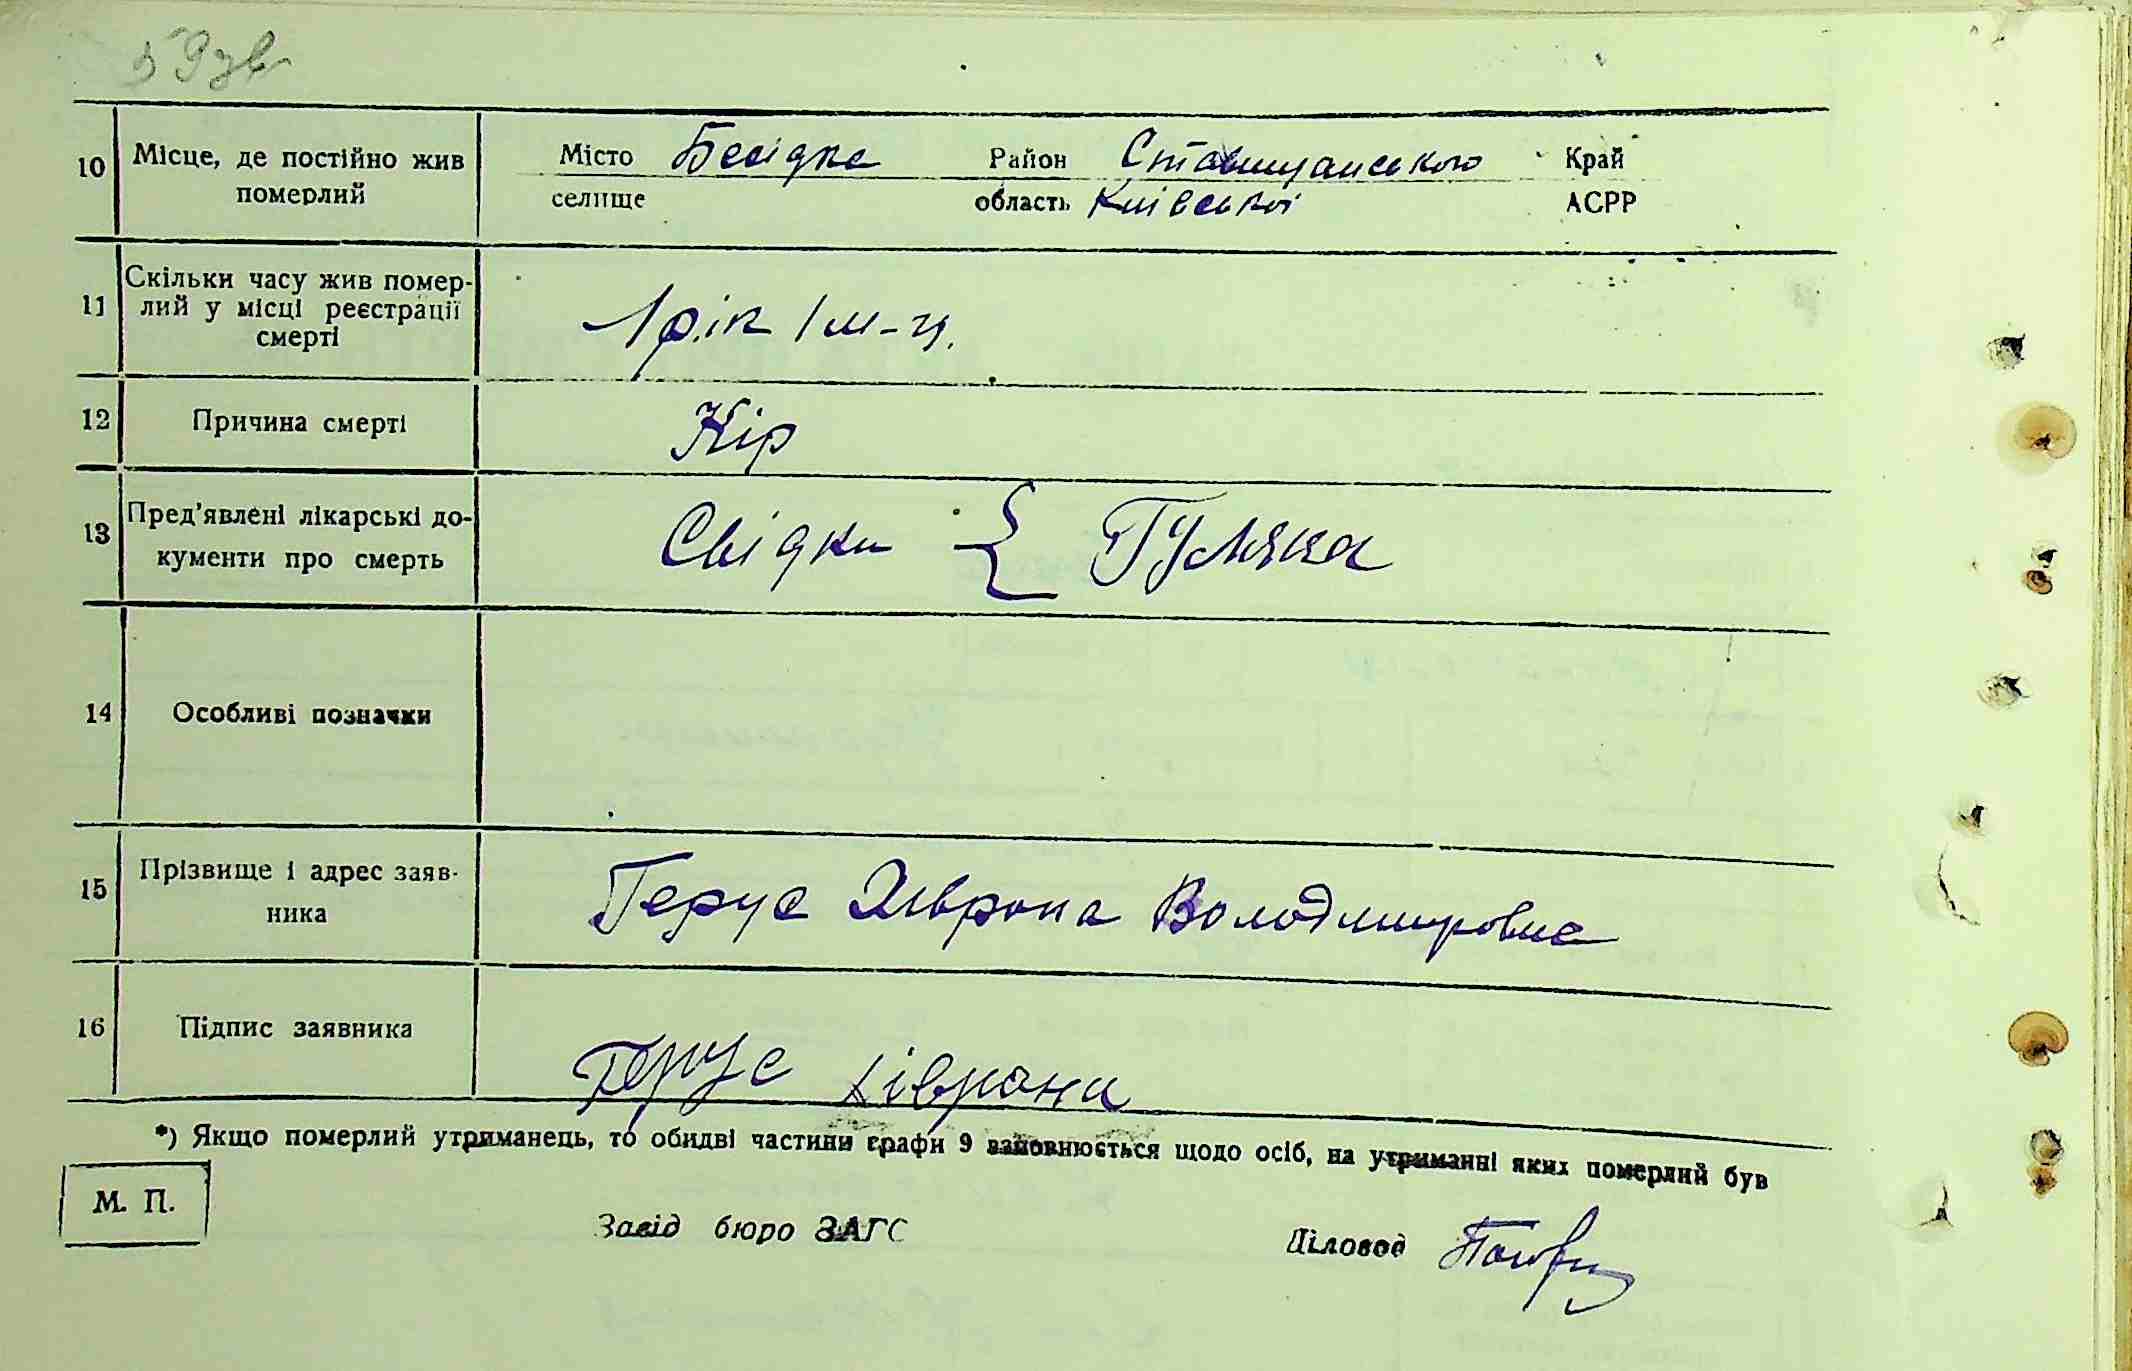 59зв
10 Місце, де постійно жив померлий Місто селище Бесідка Район Ставищанського область Київської Край АСРР
11 Скільки часу жив помер-
лий у місці реєстрації
смерті
1 рік 1 м-ц.
12 Причина смерті Кір
13 Пред'явлені лікарські до-
кументи про смерть
Свідки { Гуляка
14 Особливі позначки
15 Прізвище і адрес заяв-
ника
Герус Хіврона Володимировна
16 Підпис заявника Герус Хіврони
*) Якщо померлий утриманець, то обидві частини графи 9 заповнюється щодо осіб, на утриманні яких померлий був
М. П.
Завід бюро ЗАГС Діловод